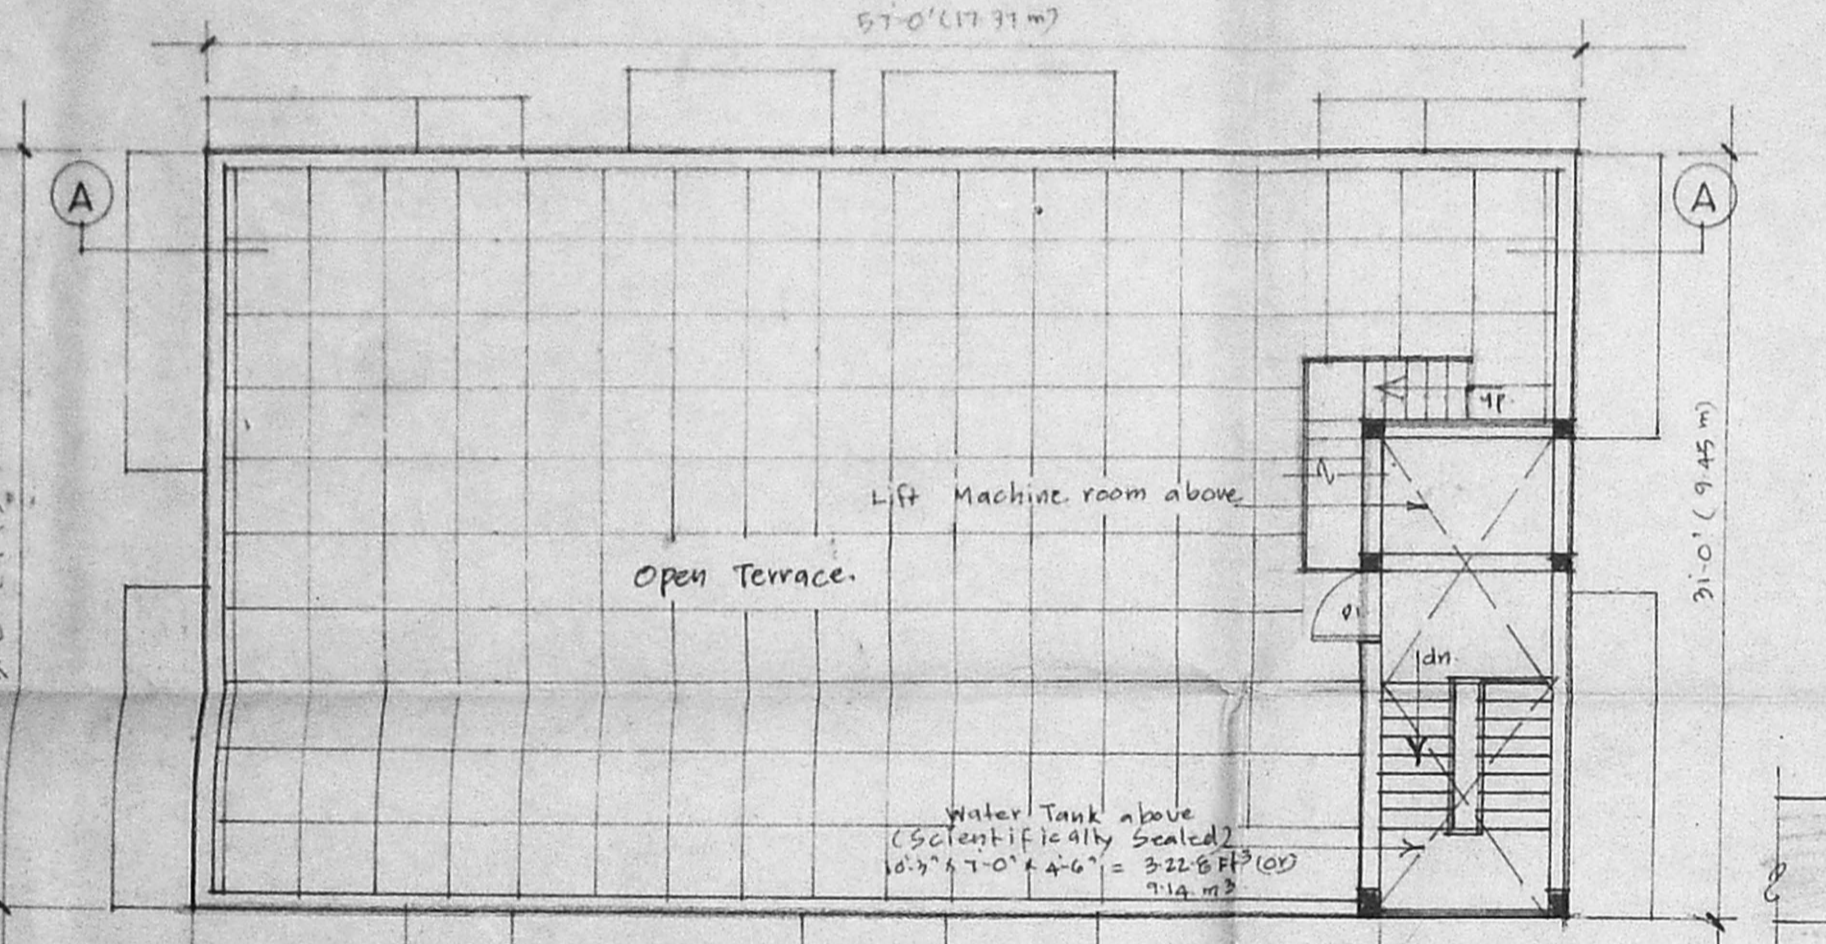 57-0' (17.37 m)
A
A
up.
31-0' (9.45 m)
Lift Machine room above
Open Terrace.
D1
dn.
Water Tank above
(Scientifically Sealed)
10'-3" x 7-0" x 4-6" = 322.8 Ft³ (or)
9.14 m³